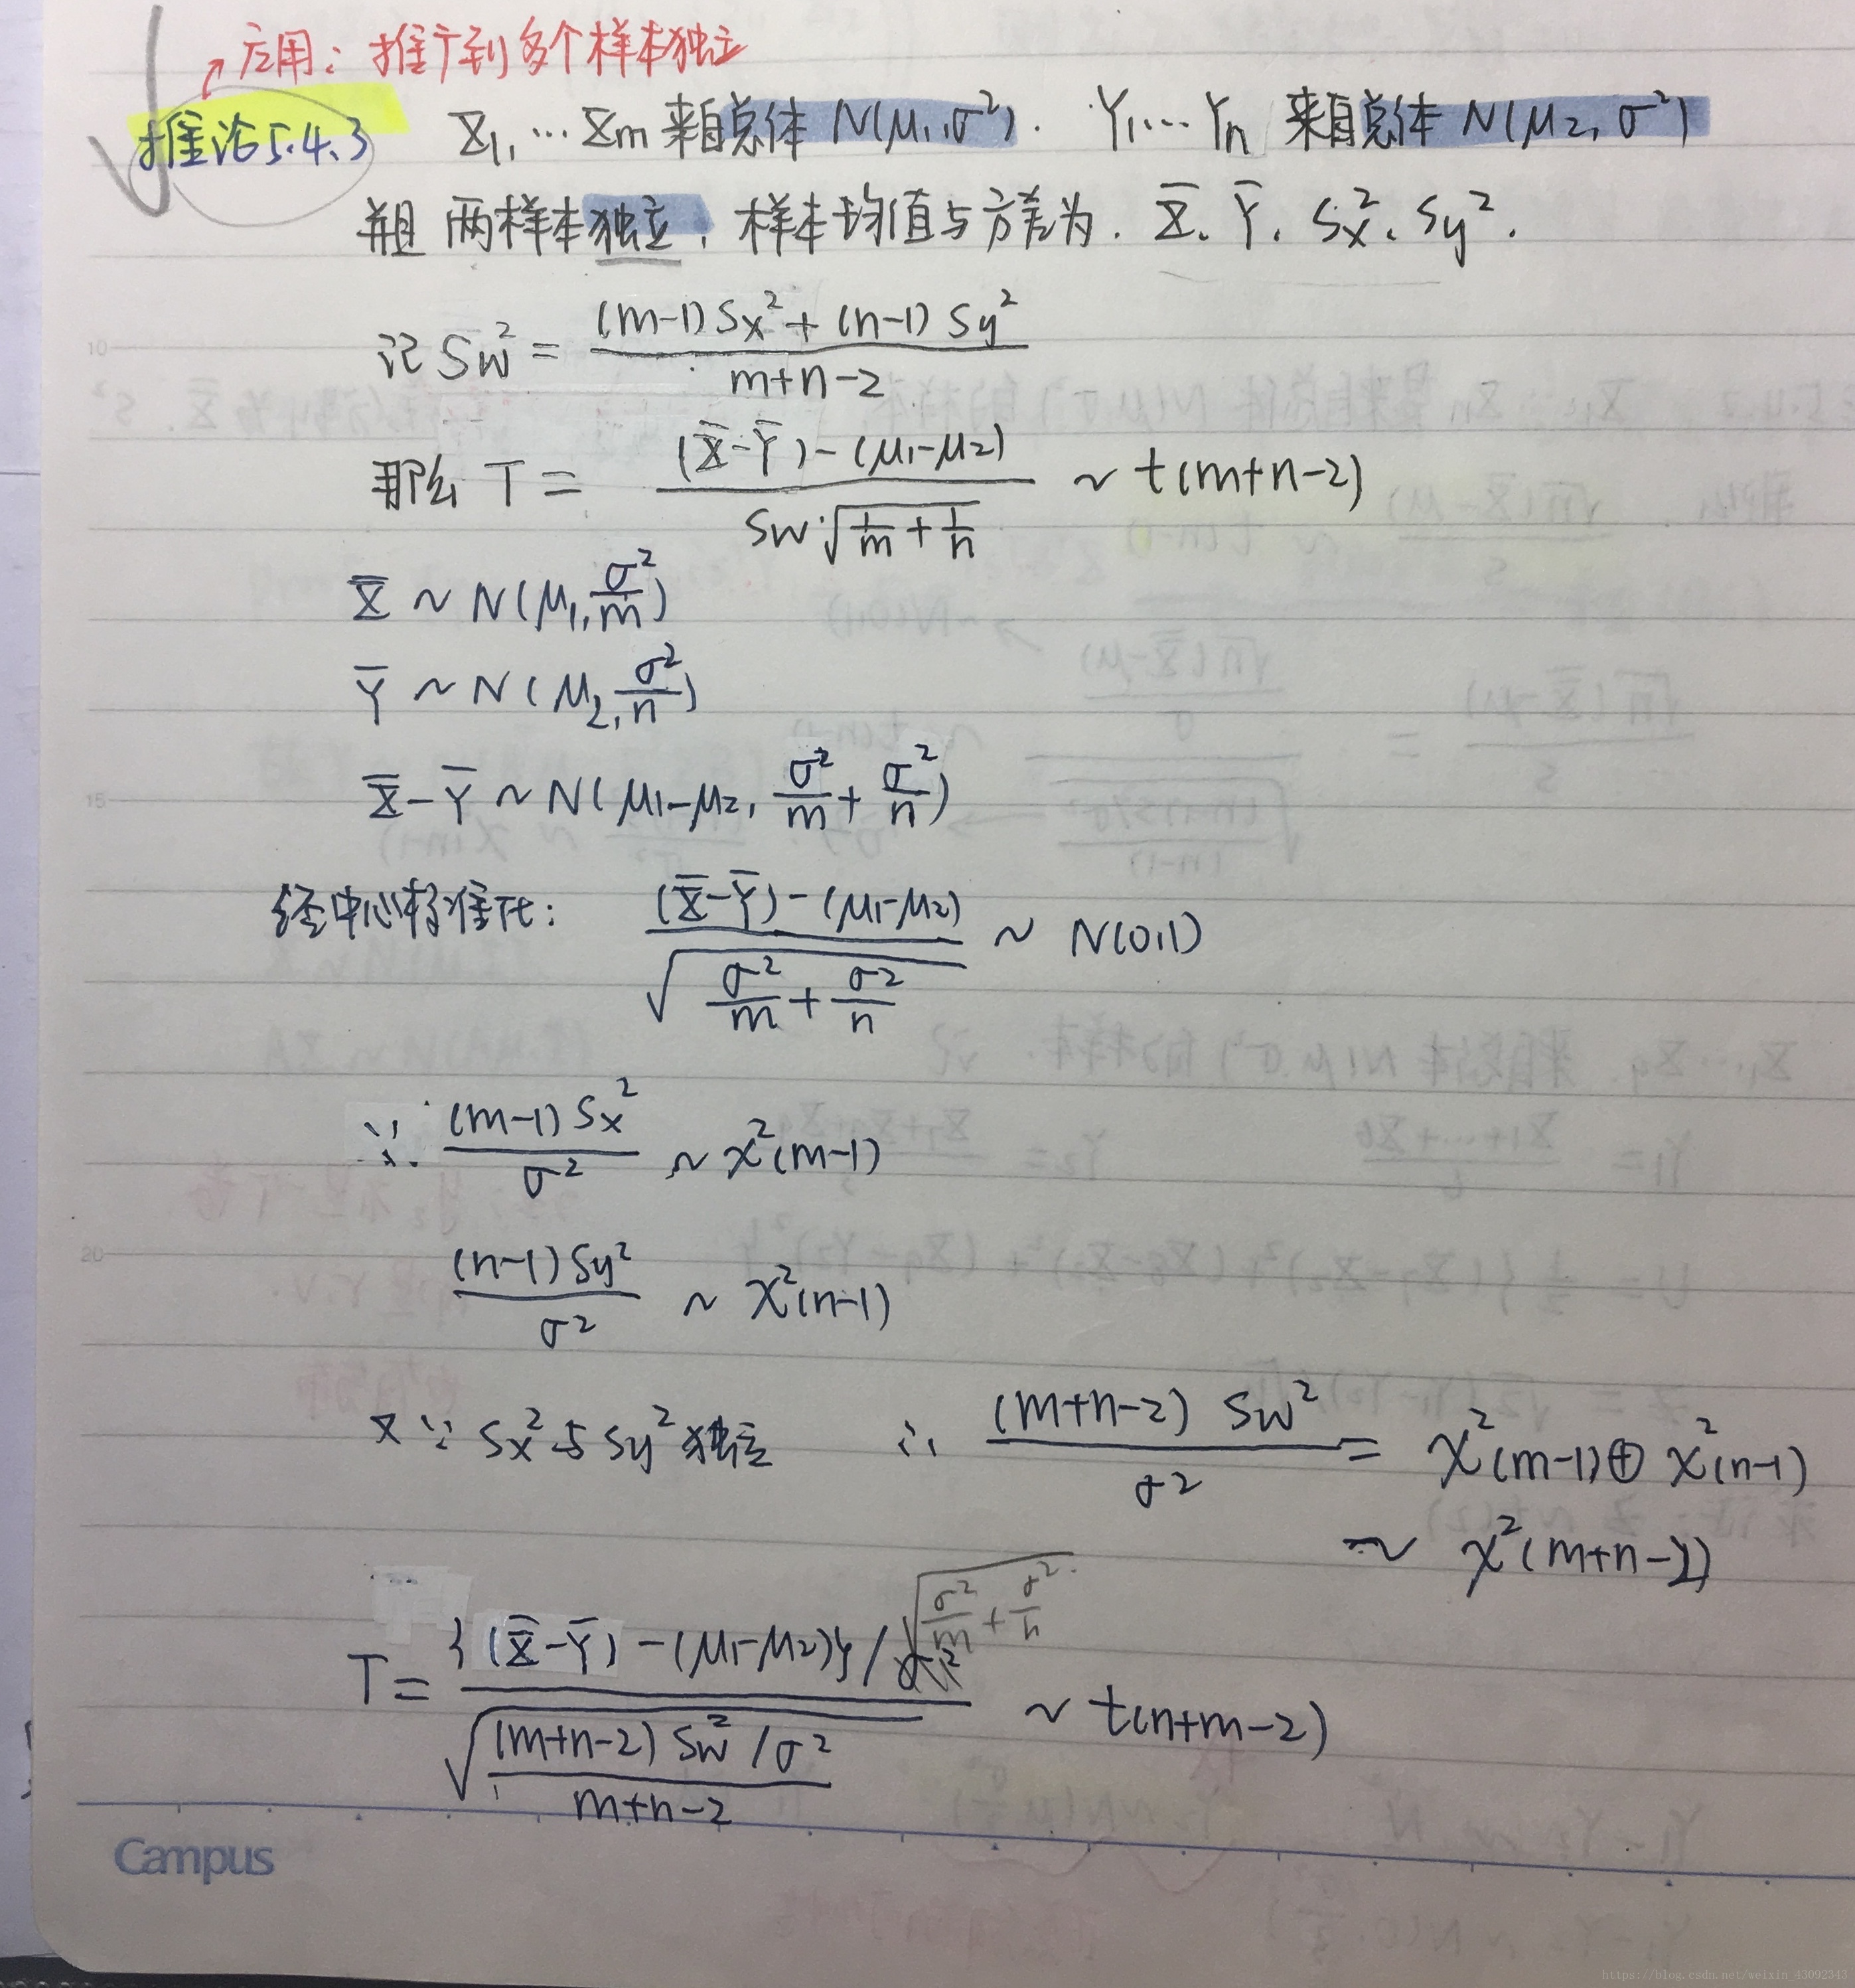 应用：推广到多个样本独立
推论5.4.3 X₁,…Xm 来自总体 N(μ₁,σ²). Y₁,…Yn 来自总体 N(μ₂,σ²)
并且 两样本独立, 样本均值与方差为. X̄、Ȳ、Sx²、Sy².
记 Sw² = ((m-1)Sx² + (n-1)Sy²) / (m+n-2)
10
那么 T = ((X̄-Ȳ)-(μ₁-μ₂)) / (Sw·√(1/m + 1/n)) ~ t(m+n-2)
X̄ ~ N(μ₁, σ²/m)
Ȳ ~ N(μ₂, σ²/n)
X̄-Ȳ ~ N(μ₁-μ₂, σ²/m + σ²/n)
15
经中心标准化: ((X̄-Ȳ)-(μ₁-μ₂)) / √(σ²/m + σ²/n) ~ N(0,1)
∵ (m-1)Sx² / σ² ~ χ²(m-1)
20
(n-1)Sy² / σ² ~ χ²(n-1)
又∵ Sx²与Sy²独立 ∴ (m+n-2)Sw² / σ² = χ²(m-1)⊕χ²(n-1)
~ χ²(m+n-2)
T = {(X̄-Ȳ)-(μ₁-μ₂)} / √(σ²/m + σ²/n) / √((m+n-2)Sw²/σ² / (m+n-2)) ~ t(n+m-2)
Campus
https://blog.csdn.net/weixin_43092343